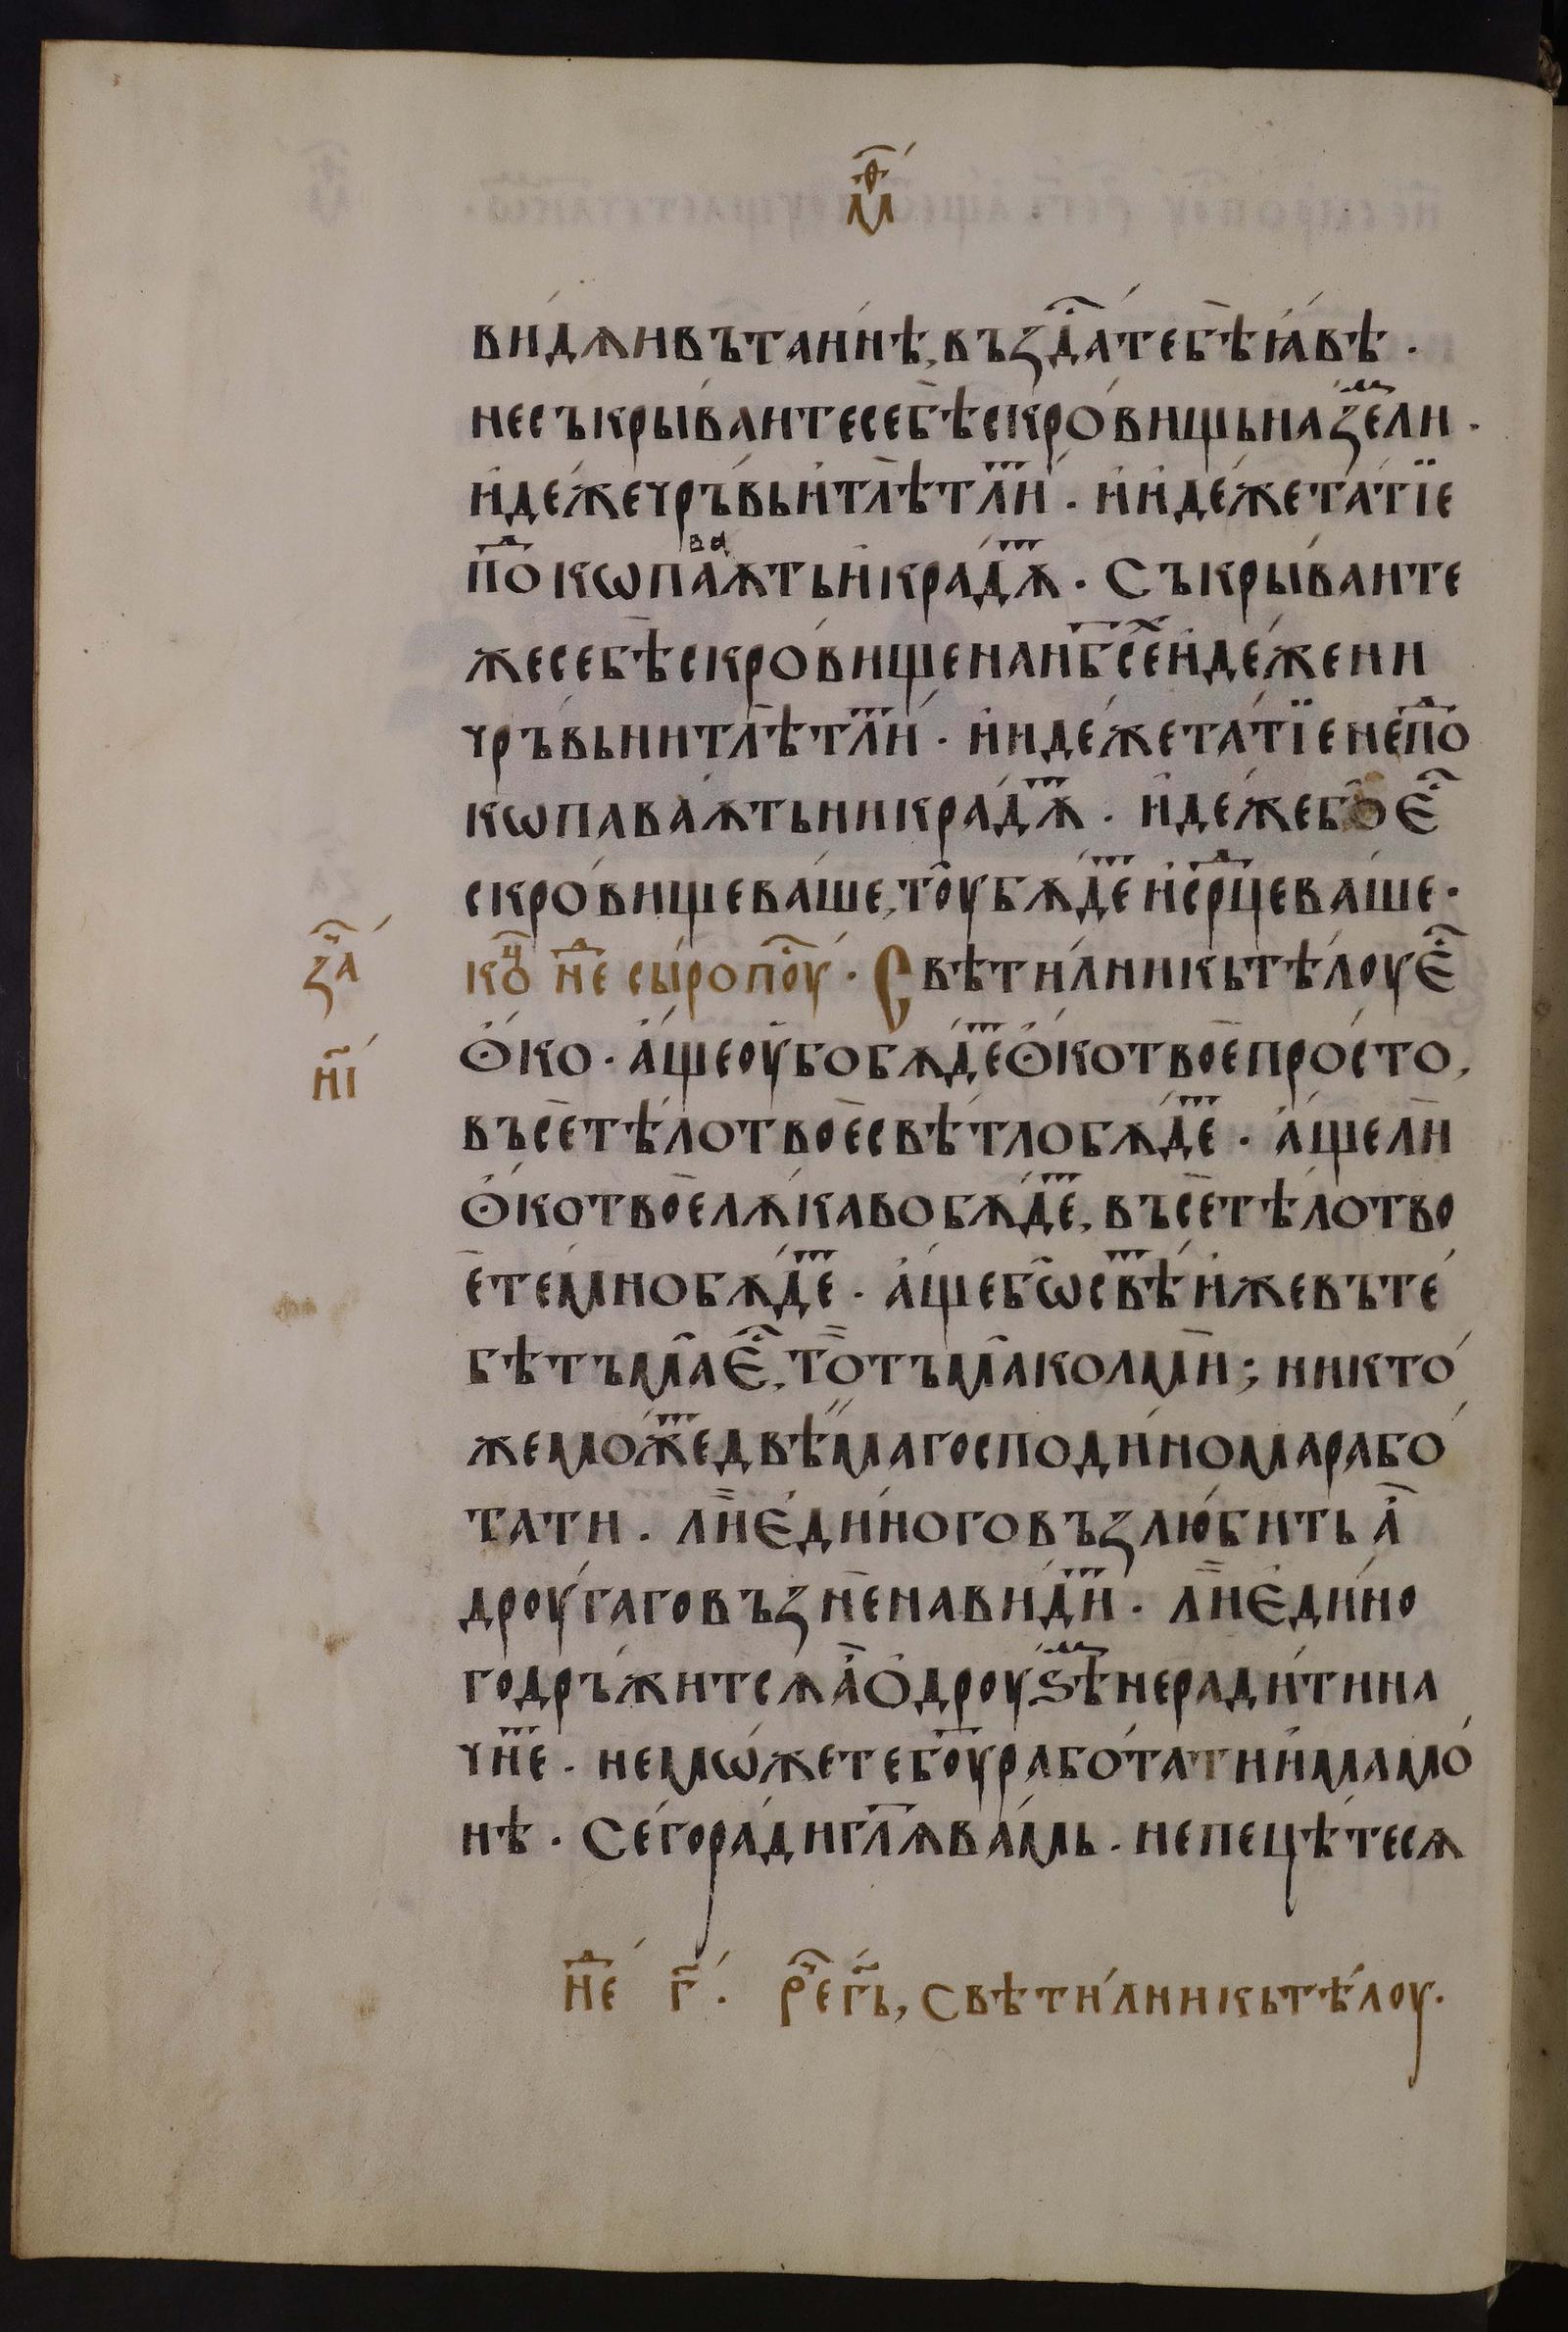 мⷴ҇
ви́дѧи въ та́инѣ, въздⷭ҇а́ тебѣ ꙗ҆́вѣ ·
не съкрыва́ите себѣ̀ скро́вищь на зеⷨ҇ли ·
и҆де́же чръ́вь и҆ тлѣ̀ тлиⷮ҇ · и҆ и҆де́же та́тїе
поⷣ҇кѡпаваѧть и҆ кра́дѫⷮ҇ · Съкрыва́ите
же себѣ̀ скро́вище на нб҃сеⷯ и҆де́же ни
чръ́вь ни тлѣ̀ тлиⷮ҇ · и҆ иде́же та́тїе не поⷣ҇
кѡпава́ѫть ни кра́дѫⷮ҇ · и҆де́же бо̀ єⷭ҇
скро́вище ва́ше, тоу̀ бѫ́деⷮ҇ и҆ срⷣ҇це ва́ше ·
заⷱ҇ коⷰ҇ неⷣ҇ сы́ропоуⷭ҇ · Свѣти́лникь тѣ́лоу єⷭ҇
н҃і ѻ҆́ко · а҆́ще оу҆̀бо бѫ́деⷮ҇ ѻ҆́ко твоѐ про́сто,
въсѐ тѣ́ло твоѐ свѣ́тло бѫ́деⷮ҇ · а҆́ще лѝ
ѻ҆́ко твоѐ лѫ́каво бѫ́деⷮ҇, въсѐ тѣ́ло тво
ѐ те́мно бѫ́деⷮ҇ · а҆́ще бѡ̀ свѣⷮ҇ и҆́же въ те́
бѣ тъма̀ єⷭ҇, то̏ тъма̀ колми̏ ; никто́
же мо́жеⷮ҇ двѣ́ма господи́нома рабо́
тати · ли̏ є҆ди́ного възлю́бить а҆̀
дроу́гаго възненави́диⷮ҇ · ли̏ є҆ди́но
го дръжитсѧ а҆̀ ѻ҆ дроуѕѣⷨ҇ неради́ти на
чнеⷮ҇ · не мѡ́жете бо҃у рабо́тати и҆ мамо́
нѣ · Се́го ра́ди гл҃ѧ ва́мь · не пецѣ́тесѧ
неⷣ҇ г҃ · реⷱ҇ г҃ь, свѣти́лникь тѣ́лоу ·